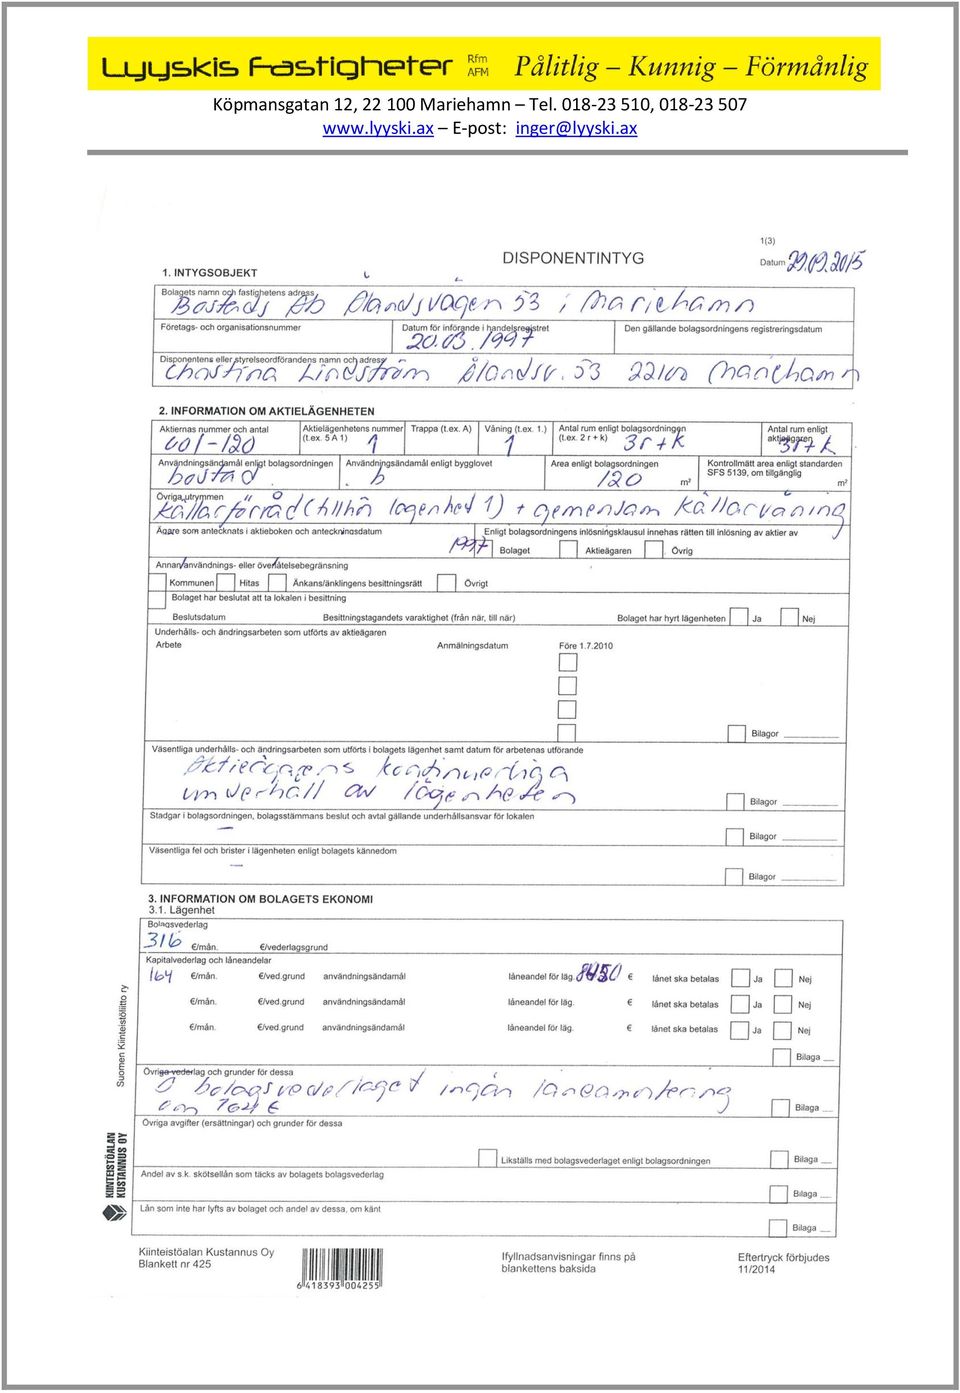 Lyyskis Fastigheter Rfm AFM Pålitlig – Kunnig – Förmånlig
Köpmansgatan 12, 22 100 Mariehamn – Tel. 018-23 510, 018-23 507
www.lyyski.ax – E-post: inger@lyyski.ax
1(3)
DISPONENTINTYG
Datum 29.09.2015
1. INTYGSOBJEKT
Bolagets namn och fastighetens adress
Bostads Ab Ålandsvägen 53 i Mariehamn
Företags- och organisationsnummer Datum för införande i handelsregistret Den gällande bolagsordningens registreringsdatum
20.03.1997
Disponentens eller styrelseordförandens namn och adress
Christina Lindström Ålandsv. 53 22100 Mariehamn
2. INFORMATION OM AKTIELÄGENHETEN
Aktiernas nummer och antal Aktielägenhetens nummer (t.ex. 5 A 1) Trappa (t.ex. A) Våning (t.ex. 1.) Antal rum enligt bolagsordningen (t.ex. 2 r + k) Antal rum enligt aktieägaren
001-120 1 1 3r+k 3r+k
Användningsändamål enligt bolagsordningen Användningsändamål enligt bygglovet Area enligt bolagsordningen Kontrollmätt area enligt standarden SFS 5139, om tillgänglig
bostad b 120 m² m²
Övriga utrymmen
Källarförråd (tillhör lägenhet 1) + gemensam källarvåning
Ägare som antecknats i aktieboken och anteckningsdatum Enligt bolagsordningens inlösningsklausul innehas rätten till inlösning av aktier av
1997 Bolaget Aktieägaren Övrig
Annan användnings- eller överlåtelsebegränsning
Kommunen Hitas Änkans/änklingens besittningsrätt Övrigt
Bolaget har beslutat att ta lokalen i besittning
Beslutsdatum Besittningstagandets varaktighet (från när, till när) Bolaget har hyrt lägenheten Ja Nej
Underhålls- och ändringsarbeten som utförts av aktieägaren
Arbete Anmälningsdatum Före 1.7.2010
Bilagor
Väsentliga underhålls- och ändringsarbeten som utförts i bolagets lägenhet samt datum för arbetenas utförande
Aktieägarens kontinuerliga
underhåll av lägenheten
Bilagor
Stadgar i bolagsordningen, bolagsstämmans beslut och avtal gällande underhållsansvar för lokalen
–
Bilagor
Väsentliga fel och brister i lägenheten enligt bolagets kännedom
–
Bilagor
3. INFORMATION OM BOLAGETS EKONOMI
3.1. Lägenhet
Bolagsvederlag
316 €/mån. €/vederlagsgrund
Kapitalvederlag och låneandelar
164 €/mån. €/ved.grund användningsändamål låneandel för läg. 8450 € lånet ska betalas Ja Nej
€/mån. €/ved.grund användningsändamål låneandel för läg. € lånet ska betalas Ja Nej
€/mån. €/ved.grund användningsändamål låneandel för läg. € lånet ska betalas Ja Nej
Bilaga
Övriga vederlag och grunder för dessa
I bolagsvederlaget ingår låneamortering
om 164 €
Bilaga
Övriga avgifter (ersättningar) och grunder för dessa
Likställs med bolagsvederlaget enligt bolagsordningen Bilaga
Andel av s.k. skötsellån som täcks av bolagets bolagsvederlag
Bilaga
Lån som inte har lyfts av bolaget och andel av dessa, om känt
Bilaga
Suomen Kiinteistöliitto ry
KIINTEISTÖALAN
KUSTANNUS OY
Kiinteistöalan Kustannus Oy
Blankett nr 425
6 418393 004255
Ifyllnadsanvisningar finns på
blankettens baksida
Eftertryck förbjudes
11/2014